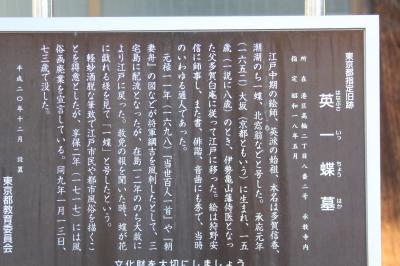 東京都指定旧跡
英一蝶墓
はなぶさ いっ ちょう はか
所在 港区高輪二丁目八番二号 承教寺内
指定 昭和一八年五月
江戸中期の絵師、英派の始祖、本名は多賀信香、
潮湖のち一蝶、北窓翁などと号した。承応元年
(一六五二)大坂(京都ともいう)に生まれ、一五
歳(一説に八歳)のとき、伊勢亀山藩侍医となっ
た父多賀白庵に従って江戸に移った。絵は狩野安
信に師事し、また書、俳諧、音曲にも秀で、当時
のいわゆる通人であった。
元禄一一年(一六九八)「当世百人一首」や「朝
妻舟」の図などが将軍綱吉を風刺したとして、三
宅島に配流となったが、在島一二年ののち大赦に
より江戸に戻った。赦免の報を聞いた時、蝶が花
に戯れる様を見て「一蝶」と号したという。
軽妙洒脱な筆致で江戸市民や都市風俗を描くこ
とを得意としたが、享保二年(一七一七)には風
俗画廃業を宣言している。同九年一月一三日、
七三歳で没した。
平成二〇年十二月 設置
東京都教育委員会
文化財を大切にしましょう